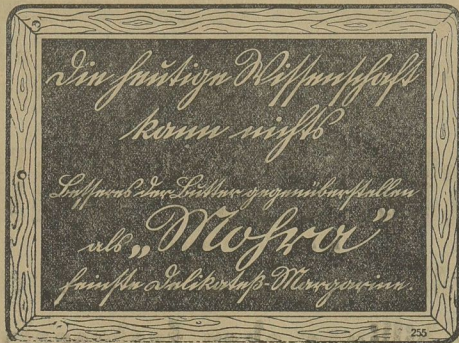 Die heutige Wissenschaft
kann nichts
Besseres der Butter gegenüberstellen
als „Mohra”
feinste Delikateß-Margarine.
255